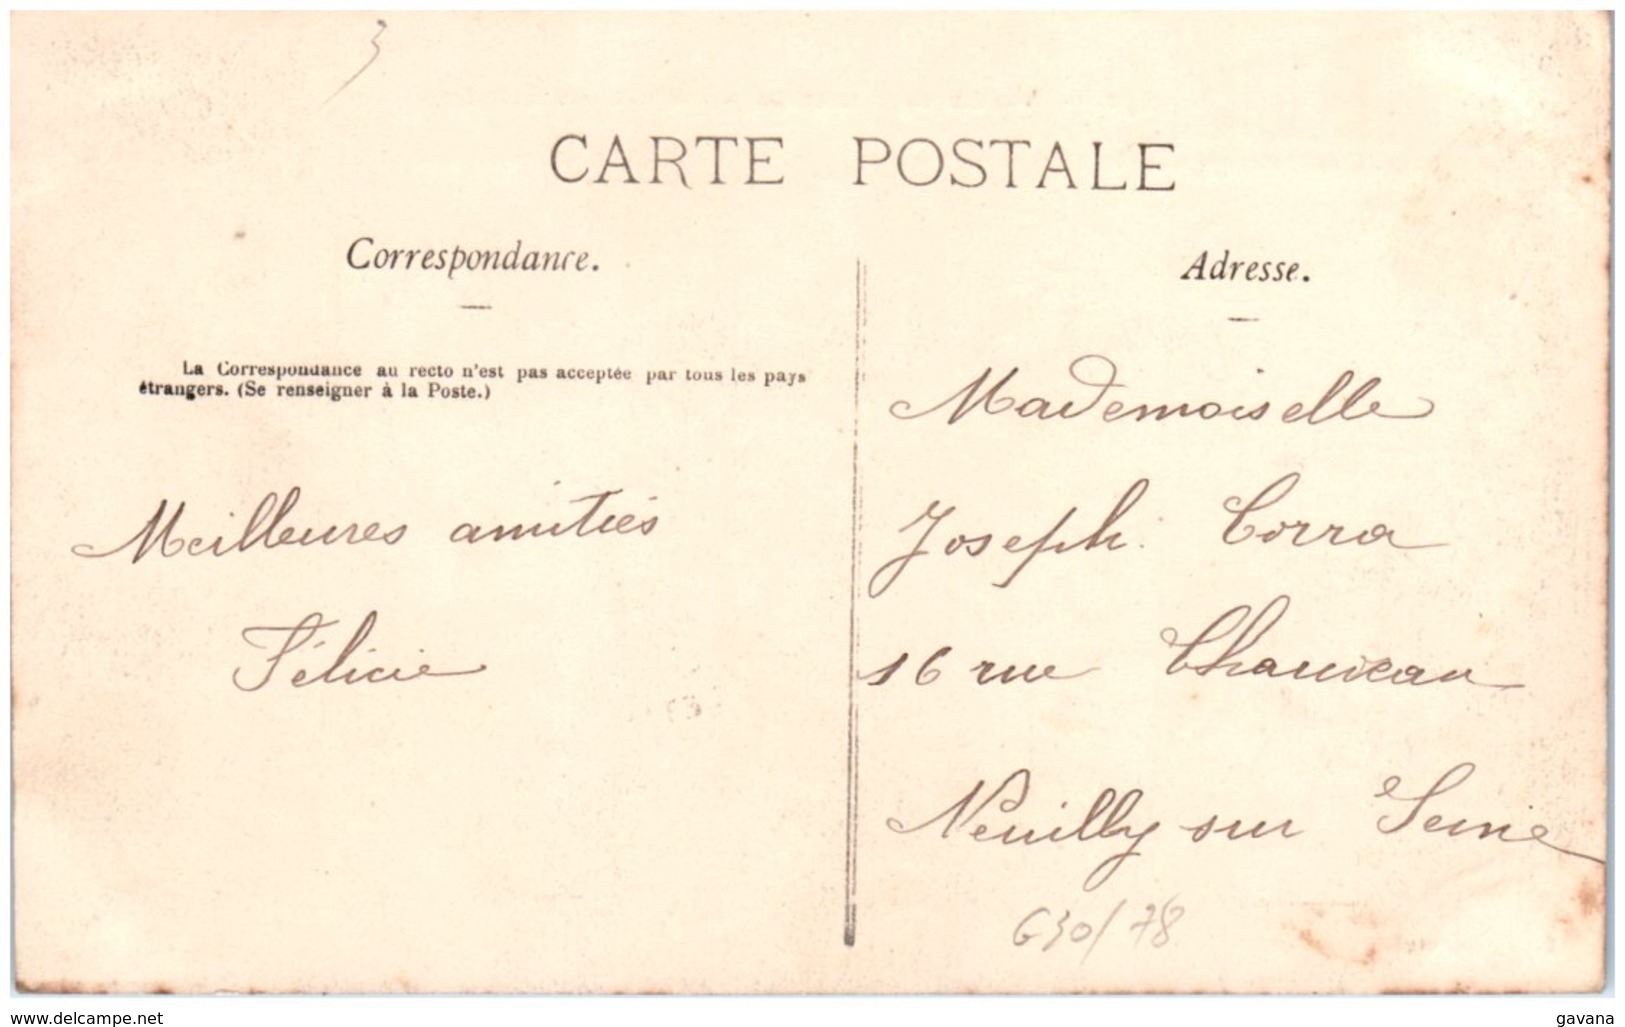 3
CARTE POSTALE
Correspondance.
Adresse.
La Correspondance au recto n'est pas acceptée par tous les pays
étrangers. (Se renseigner à la Poste.)
Meilleures amitiés
Félicie
Mademoiselle
Joseph. Corra
16 rue Chauveau
Neuilly sur Seine
G30/78
www.delcampe.net
gavana